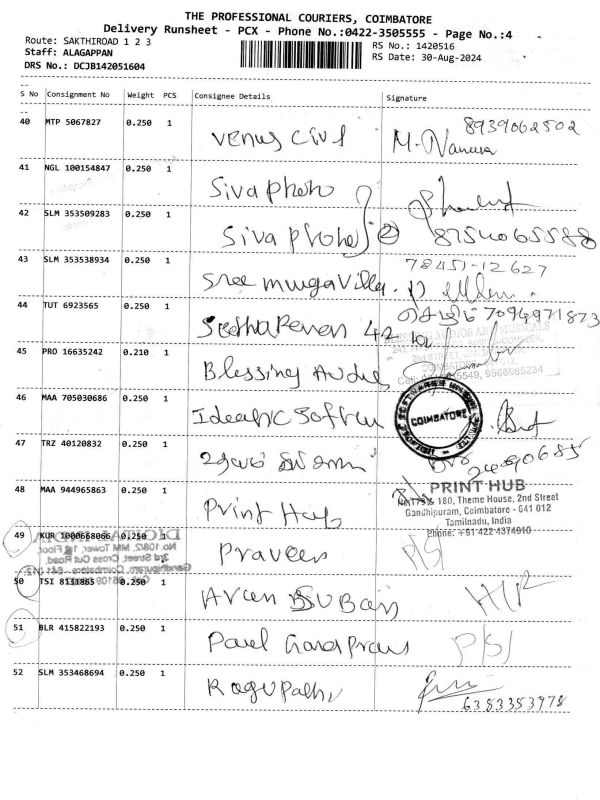 THE PROFESSIONAL COURIERS, COIMBATORE
Delivery Runsheet - PCX - Phone No.:0422-3505555 - Page No.:4
Route: SAKTHIROAD 1 2 3
RS No.: 1420516
Staff: ALAGAPPAN
RS Date: 30-Aug-2024
DRS No.: DCJB142051604
S No Consignment No Weight PCS Consignee Details Signature
40 MTP 5067827 0.250 1 Venus Civil 8939062502
41 NGL 100154847 0.250 1 Siva photo
42 SLM 353509283 0.250 1 Siva photo 2 8754065588
43 SLM 353538934 0.250 1 Sree Murga Villa 78451-12627
44 TUT 6923565 0.250 1 7094971873
45 PRO 16635242 0.210 1 Blessing Audio
46 MAA 705030686 0.250 1 COIMBATORE
47 TRZ 40120832 0.250 1
48 MAA 944965863 0.250 1 Print Hub
PRINT HUB
No.179 & 180, Theme House, 2nd Street
Gandhipuram, Coimbatore - 641 012
Tamilnadu, India
Phone: +91 422 4374910
49 KUR 1000668066 0.250 1 Praveen P/S/
50 TSI 8131865 0.250 1 Arun
51 BLR 415822193 0.250 1 Paul P/S/
52 SLM 353468694 0.250 1 Ragupathi
6383353978